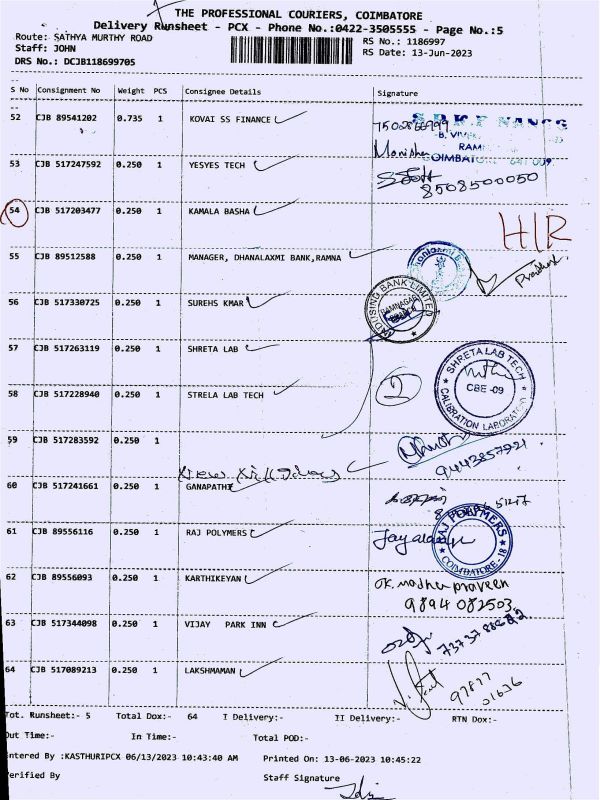 THE PROFESSIONAL COURIERS, COIMBATORE
Delivery Runsheet - PCX - Phone No.:0422-3505555 - Page No.:5
Route: SATHYA MURTHY ROAD
RS No.: 1186997
Staff: JOHN
RS Date: 13-Jun-2023
DRS No.: DCJB118699705
S No Consignment No Weight PCS Consignee Details Signature
52 CJB 89541202 0.735 1 KOVAI SS FINANCE
53 CJB 517247592 0.250 1 YESYES TECH
8508500050
54 CJB 517203477 0.250 1 KAMALA BASHA
HIR
55 CJB 89512588 0.250 1 MANAGER, DHANALAXMI BANK,RAMNA
56 CJB 517330725 0.250 1 SUREHS KMAR
INDUSIND BANK LIMITED
RAMNAGAR
57 CJB 517263119 0.250 1 SHRETA LAB
SHRETA LAB TECH
CBE -09
CALIBRATION LABORATORY
58 CJB 517228940 0.250 1 STRELA LAB TECH
2
59 CJB 517283592 0.250 1
9443857921
60 CJB 517241661 0.250 1 GANAPATHI
61 CJB 89556116 0.250 1 RAJ POLYMERS
RAJ POLYMERS
COIMBATORE - 18
62 CJB 89556093 0.250 1 KARTHIKEYAN
OK. madhu praveen
9894 082503
63 CJB 517344098 0.250 1 VIJAY PARK INN
64 CJB 517089213 0.250 1 LAKSHMAMAN
97877
01636
Tot. Runsheet:- 5 Total Dox:- 64 I Delivery:- II Delivery:- RTN Dox:-
Out Time:- In Time:- Total POD:-
Entered By :KASTHURIPCX 06/13/2023 10:43:40 AM Printed On: 13-06-2023 10:45:22
Verified By Staff Signature